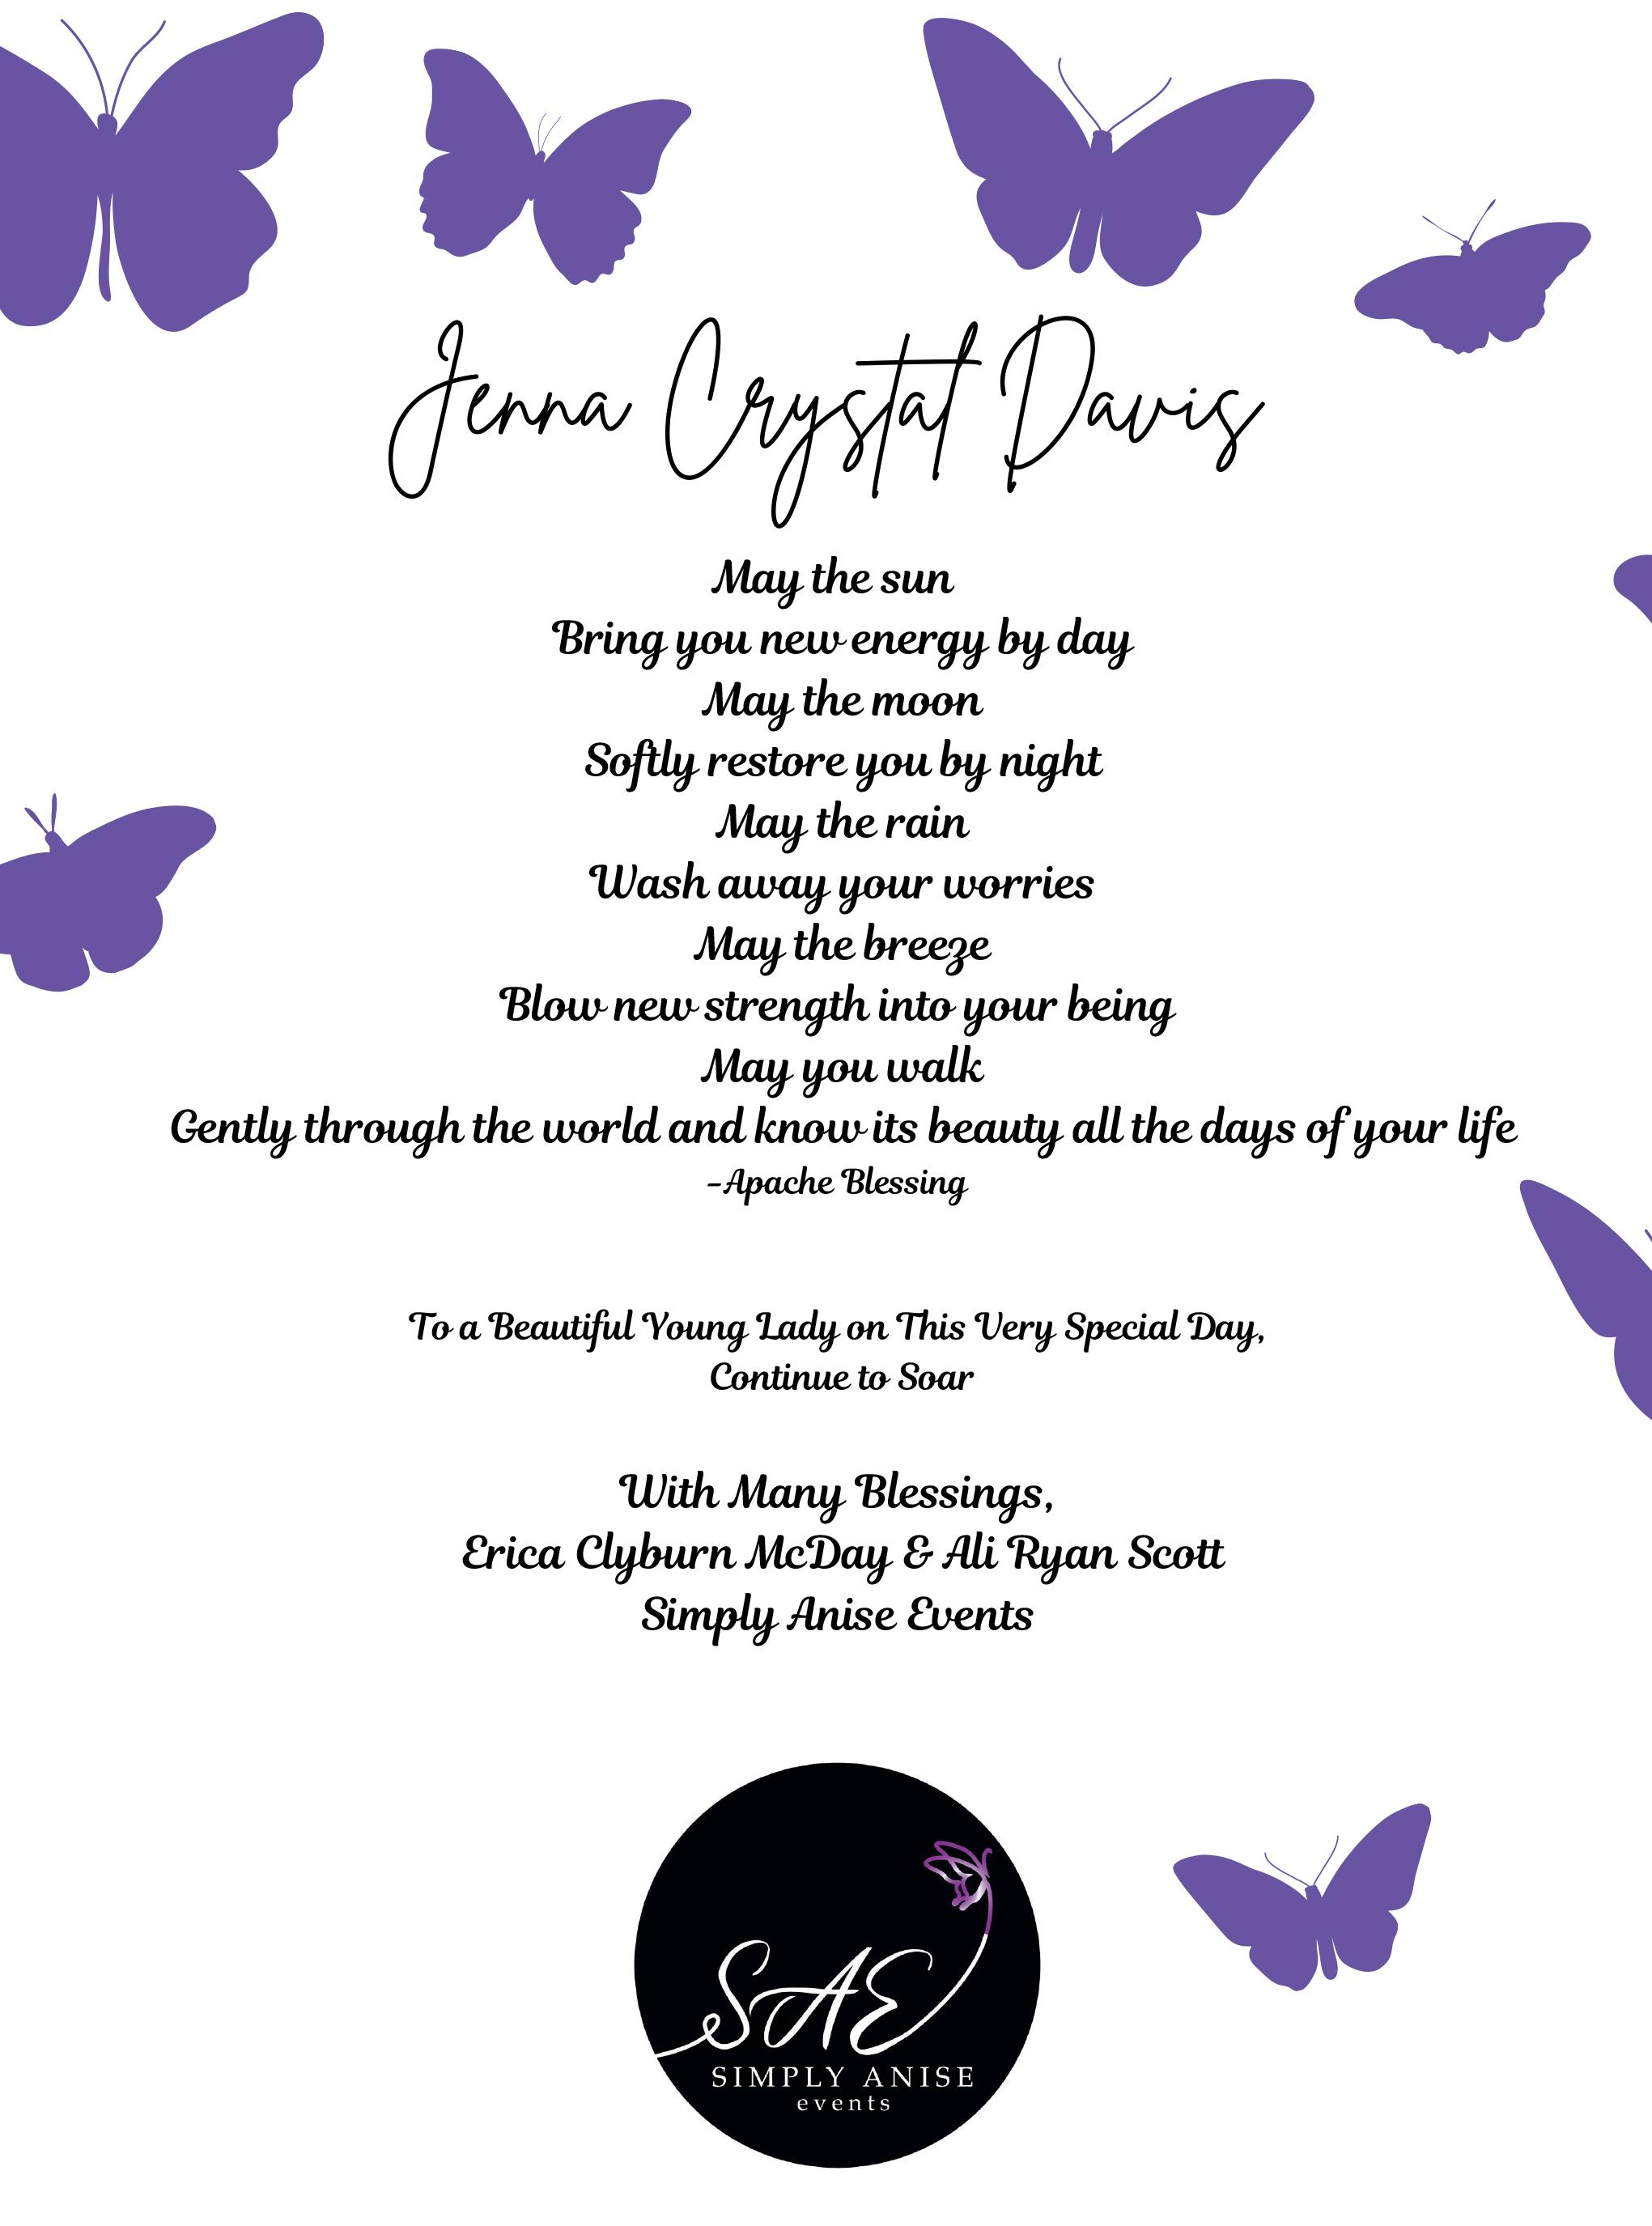 Jenna Crystal Davis
May the sun
Bring you new energy by day
May the moon
Softly restore you by night
May the rain
Wash away your worries
May the breeze
Blow new strength into your being
May you walk
Gently through the world and know its beauty all the days of your life
-Apache Blessing
To a Beautiful Young Lady on This Very Special Day,
Continue to Soar
With Many Blessings,
Erica Clyburn McDay & Ali Ryan Scott
Simply Anise Events
SAE
SIMPLY ANISE
events